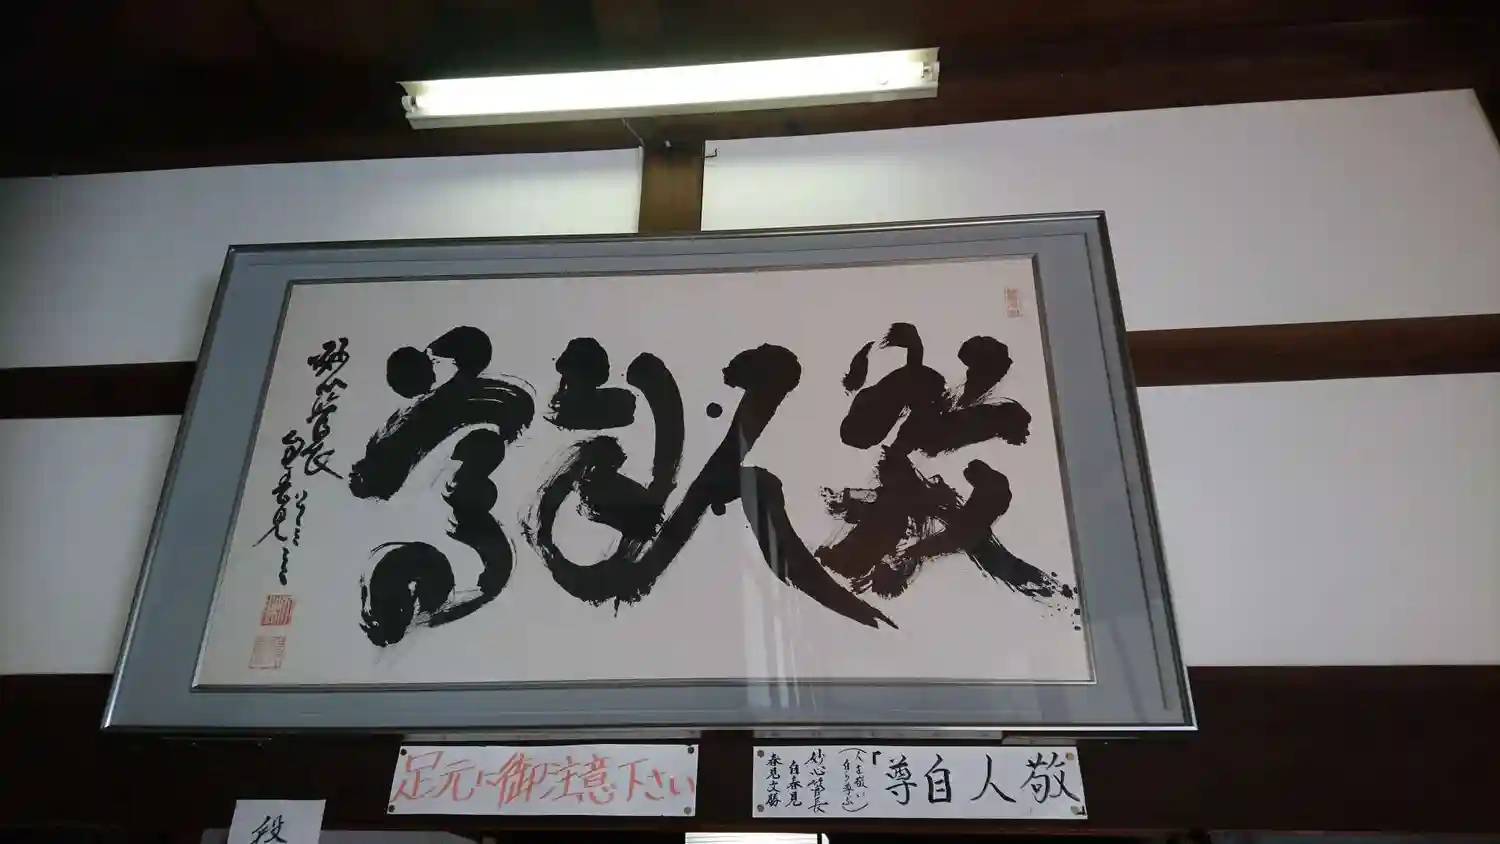 敬人自尊
妙心管長
足元に御注意下さい
敬人自尊
(人を敬い
自ら尊ぶ)
妙心管長
自春見
春見文勝
段